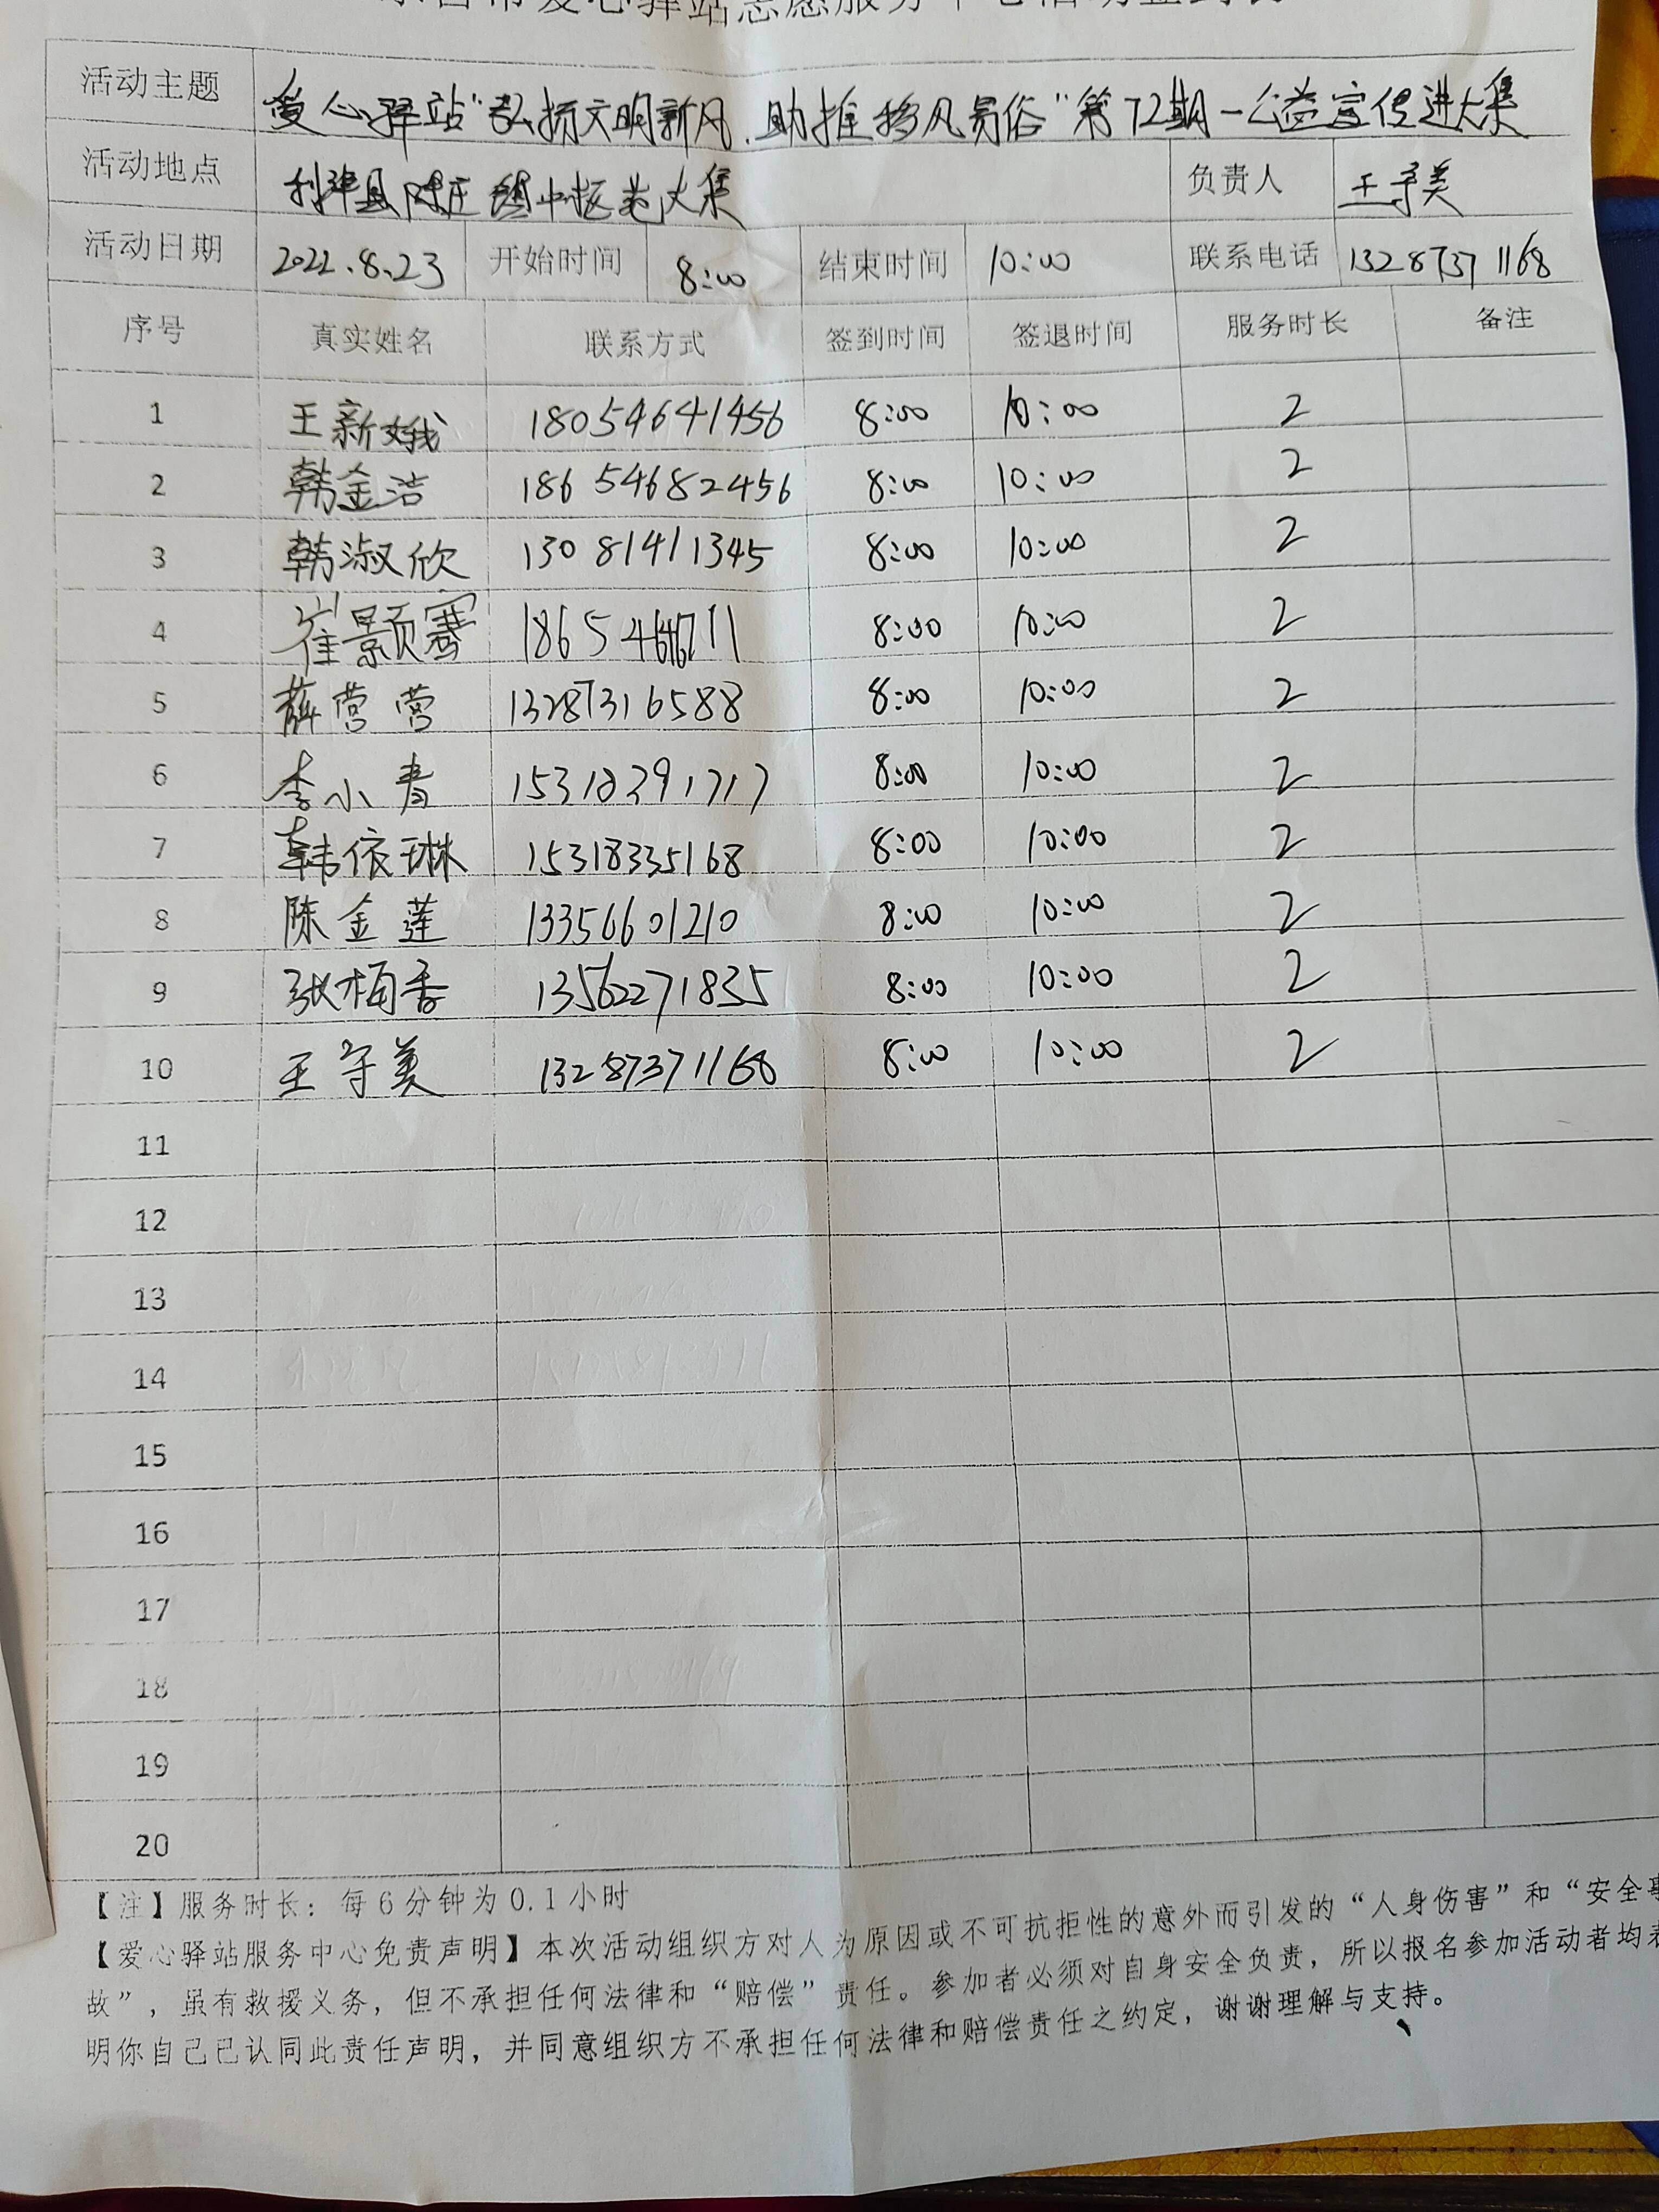 爱心驿站志愿服务中心活动签到表
活动主题 爱心驿站“弘扬文明新风、助推移风易俗”第72期—公益宣传进大集
活动地点 利津县陈庄镇中大集 负责人 王守美
活动日期 2022.8.23 开始时间 8:00 结束时间 10:00 联系电话 13287371168
序号 真实姓名 联系方式 签到时间 签退时间 服务时长 备注
1 王新娥 18054641456 8:00 10:00 2
2 韩金洁 18654682456 8:00 10:00 2
3 韩淑欣 13081411345 8:00 10:00 2
4 崔颢骞 8:00 10:00 2
5 薛营营 13287316588 8:00 10:00 2
6 李小青 15318291717 8:00 10:00 2
7 韩依琳 15318335168 8:00 10:00 2
8 陈金莲 13356601210 8:00 10:00 2
9 张梅香 13562271835 8:00 10:00 2
10 王守美 13287371168 8:00 10:00 2
11
12
13
14
15
16
17
18
19
20
【注】服务时长：每6分钟为0.1小时
【爱心驿站服务中心免责声明】本次活动组织方对人为原因或不可抗拒性的意外而引发的“人身伤害”和“安全事
故”，虽有救援义务，但不承担任何法律和“赔偿”责任。参加者必须对自身安全负责，所以报名参加活动者均表
明你自己已认同此责任声明，并同意组织方不承担任何法律和赔偿责任之约定，谢谢理解与支持。